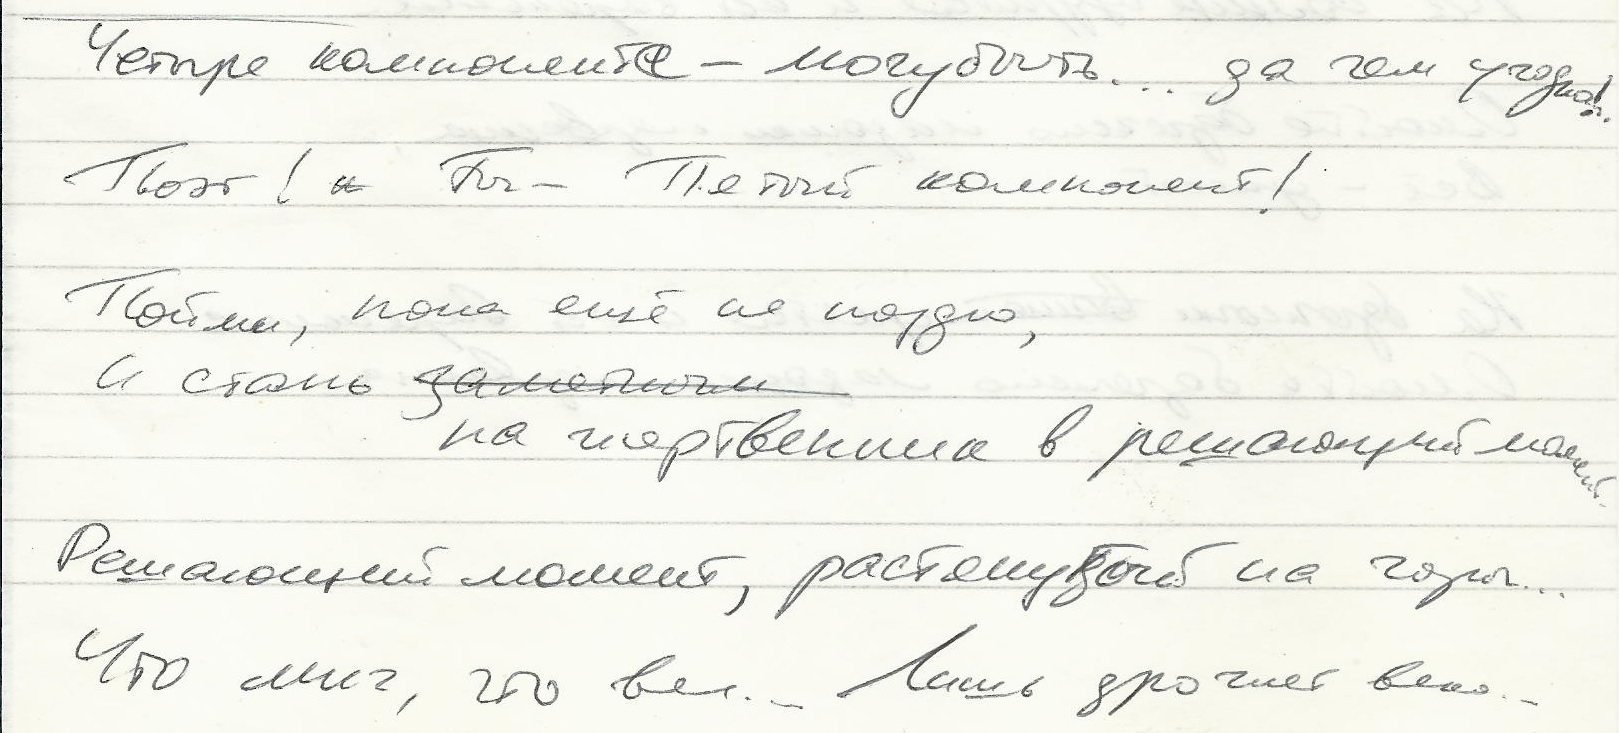 Четыре компонента – могу быть... да чем угодно!..
Поэт! Ты – Пятый компонент!
Пойми, пока ещё не поздно,
И стань заметным
на жертвенник в решающий момент.
Решающий момент, растянутый на годы...
Что миг, что век... Лишь дрогнет веко...